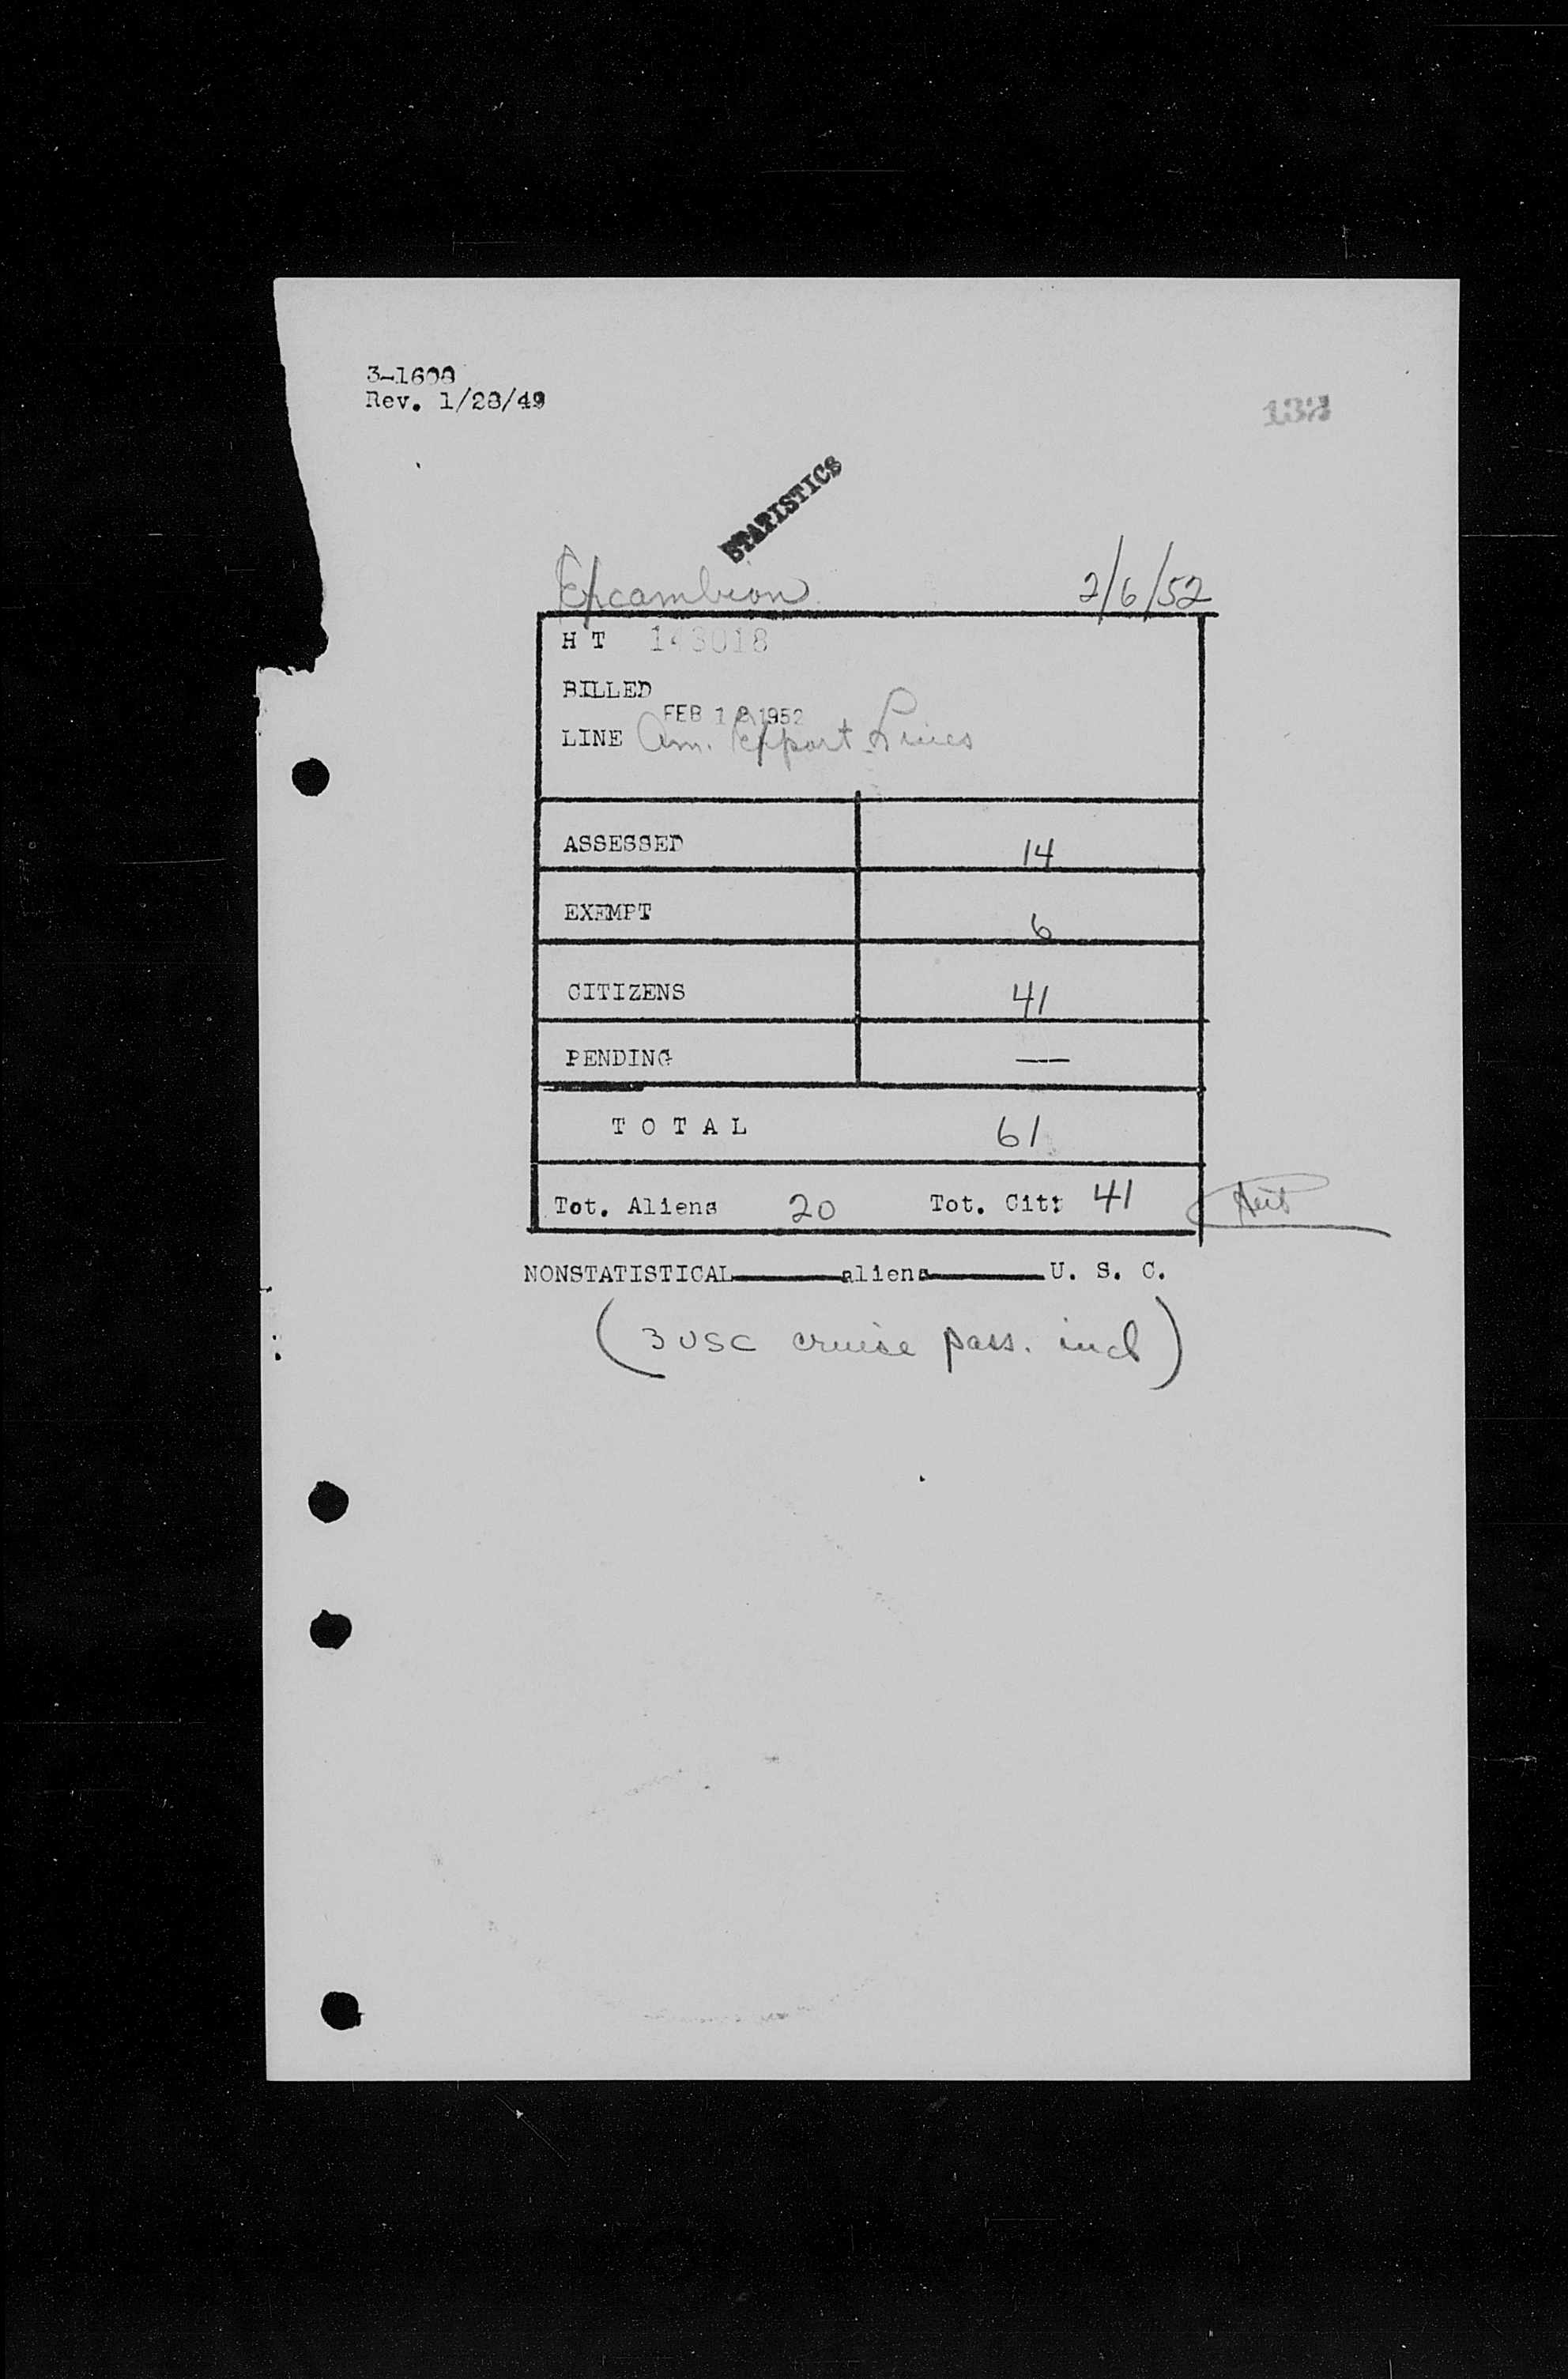 3-1608
Rev. 1/28/49
132
STATISTICS
Excambion 2/6/52
H T 143018
BILLED
FEB 1 1952
LINE Am. Export Lines
ASSESSED 14
EXEMPT 6
CITIZENS 41
PENDING —
T O T A L 61
Tot. Aliens 20 Tot. Cit: 41
NONSTATISTICAL aliens U. S. C.
(3 USC cruise pass. incl)